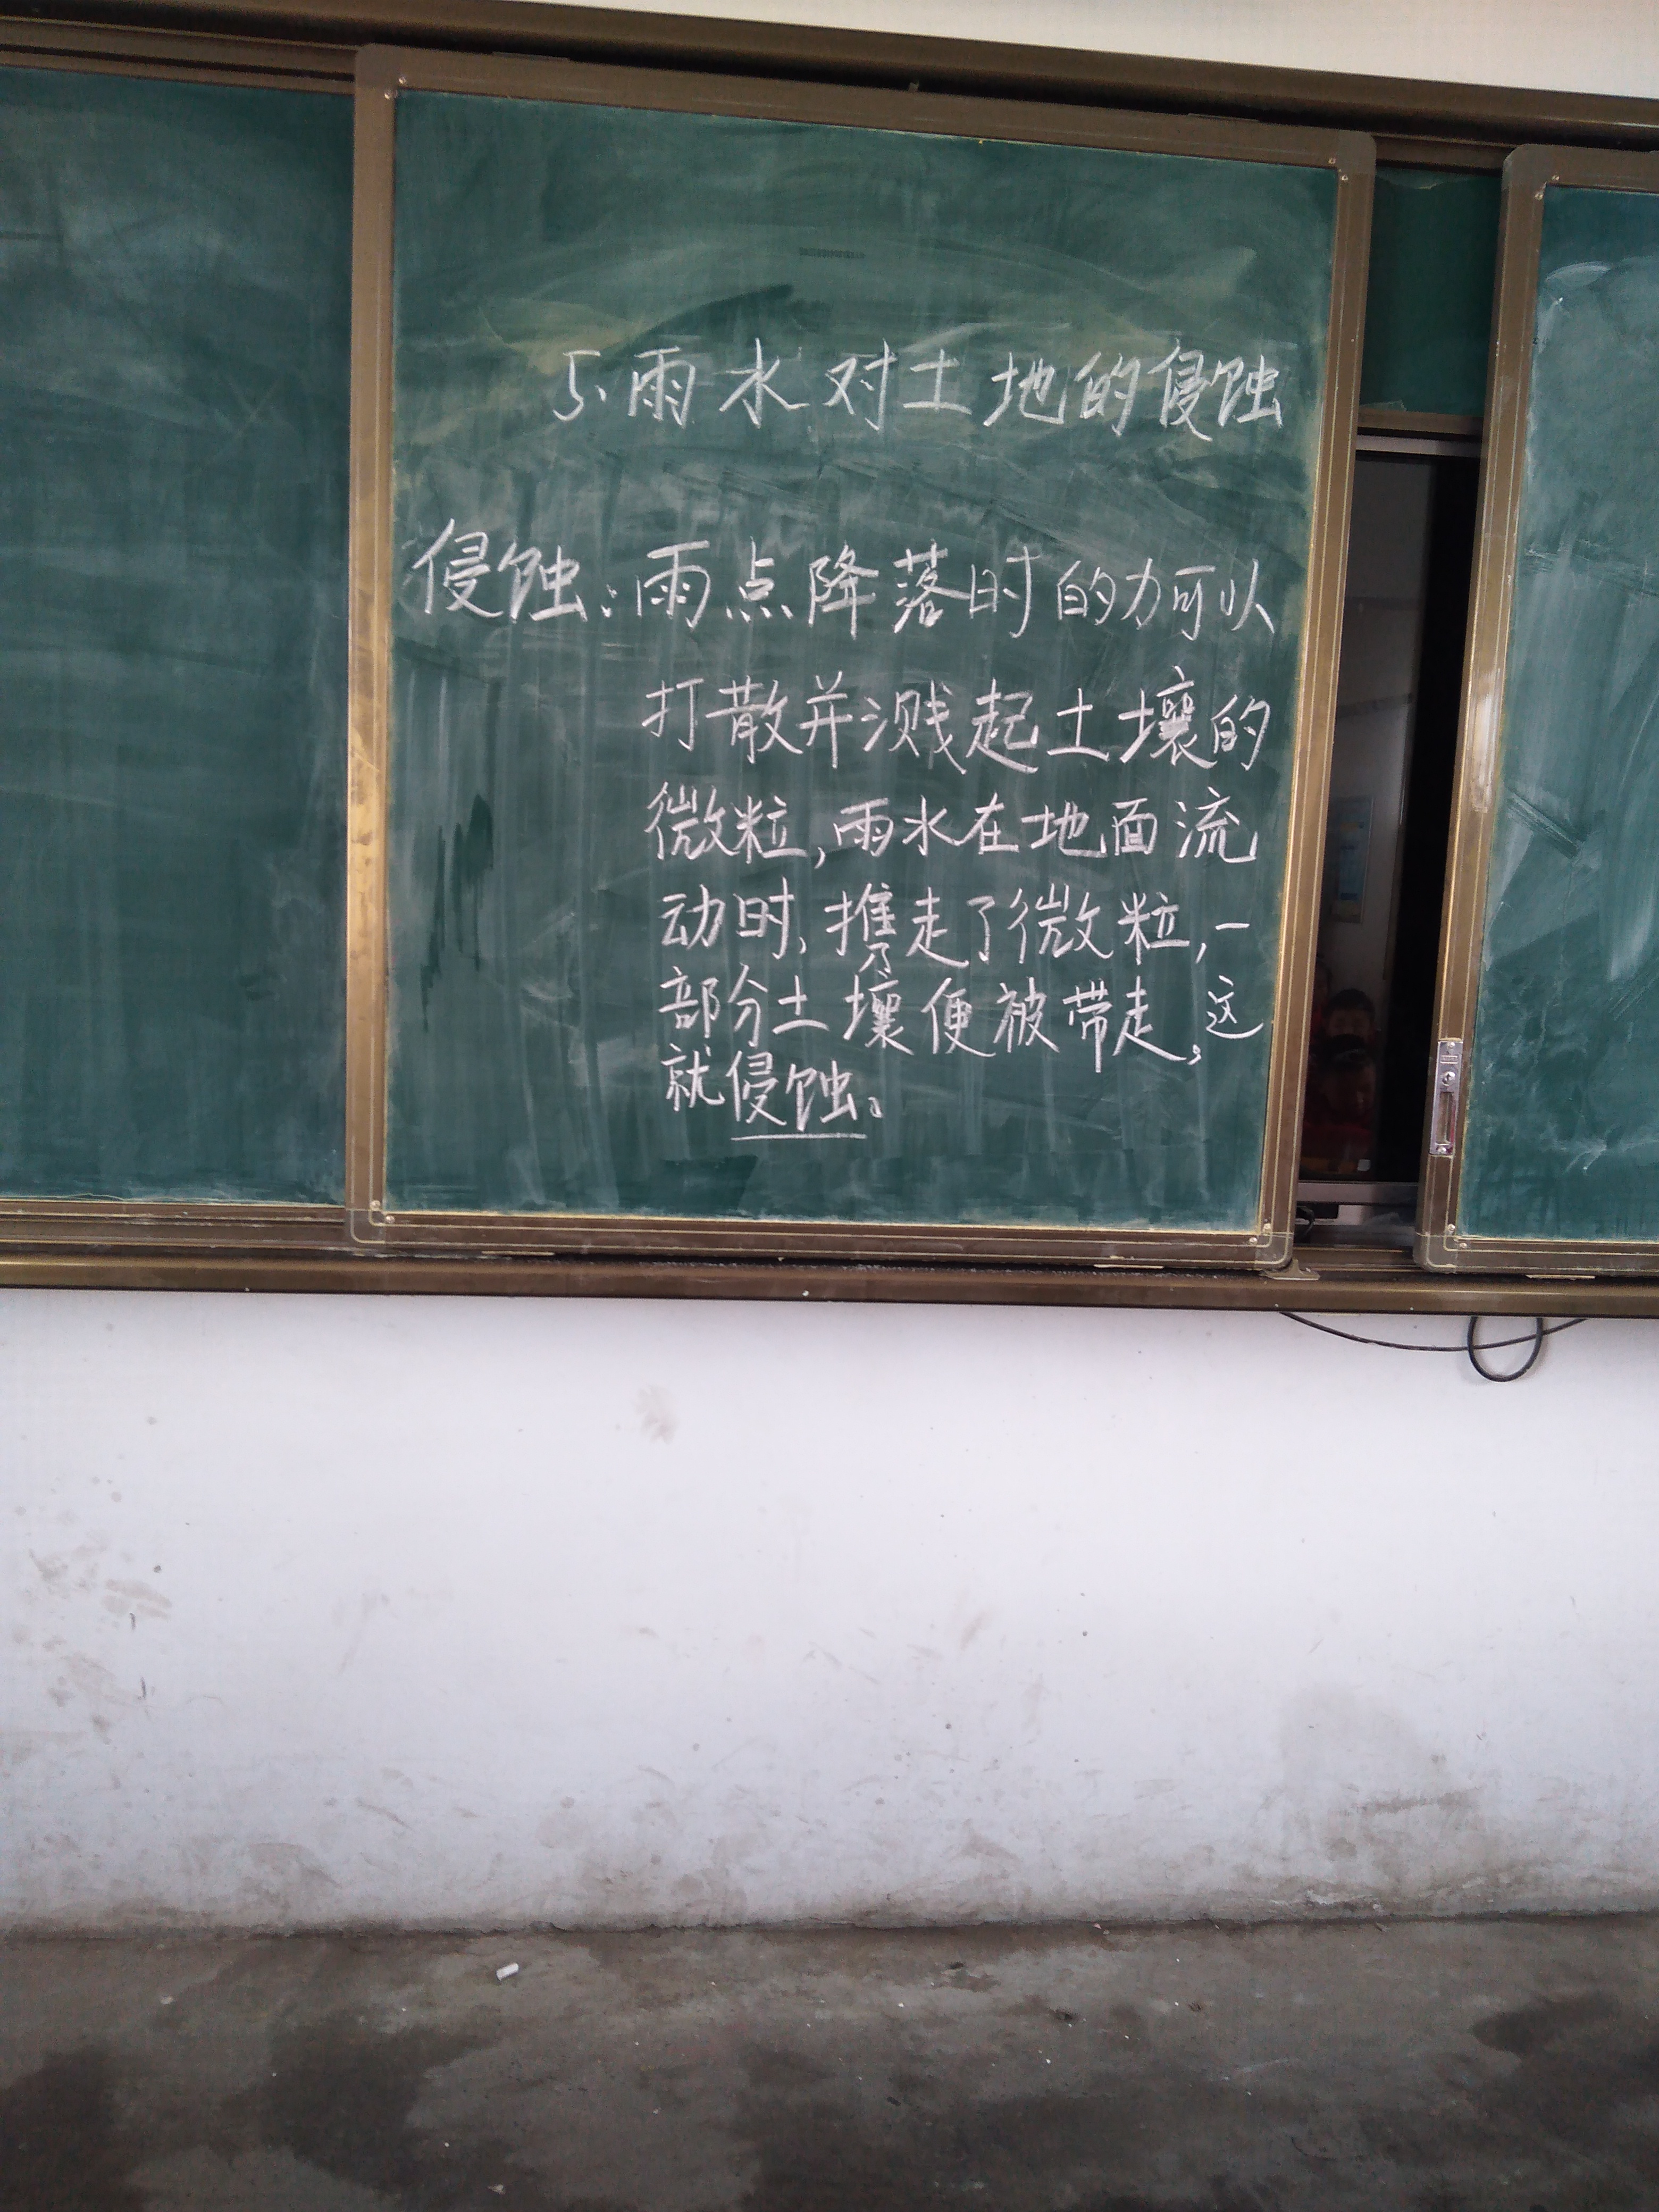 5、雨水对土地的侵蚀
侵蚀:雨点降落时的力可以
打散并溅起土壤的
微粒,雨水在地面流
动时,携走了微粒,一
部分土壤便被带走。这
就侵蚀。